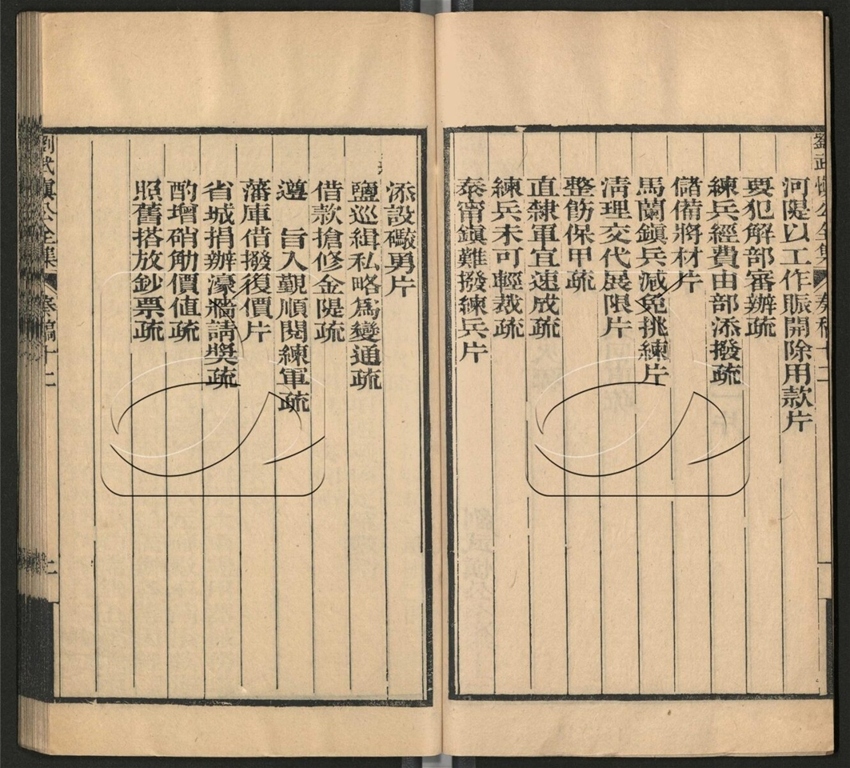 劉武慎公全集 奏稿十二
河隄以工作賑開除用款片
要犯解部審辦疏
練兵經費由部添撥疏
儲備將材片
馬蘭鎭兵減免挑練片
淸理交代展限片
整飭保甲疏
直隸軍宜速成疏
練兵未可輕裁疏
泰甯鎭難撥練兵片
添設礮勇片
鹽巡緝私略爲變通疏
借款搶修金隄疏
遵 旨入覲順閱練軍疏
藩庫借撥復價片
省城捐辦濠牆請奬疏
酌增硝觔價值疏
照舊搭放鈔票疏
劉武慎公全集 奏稿十二